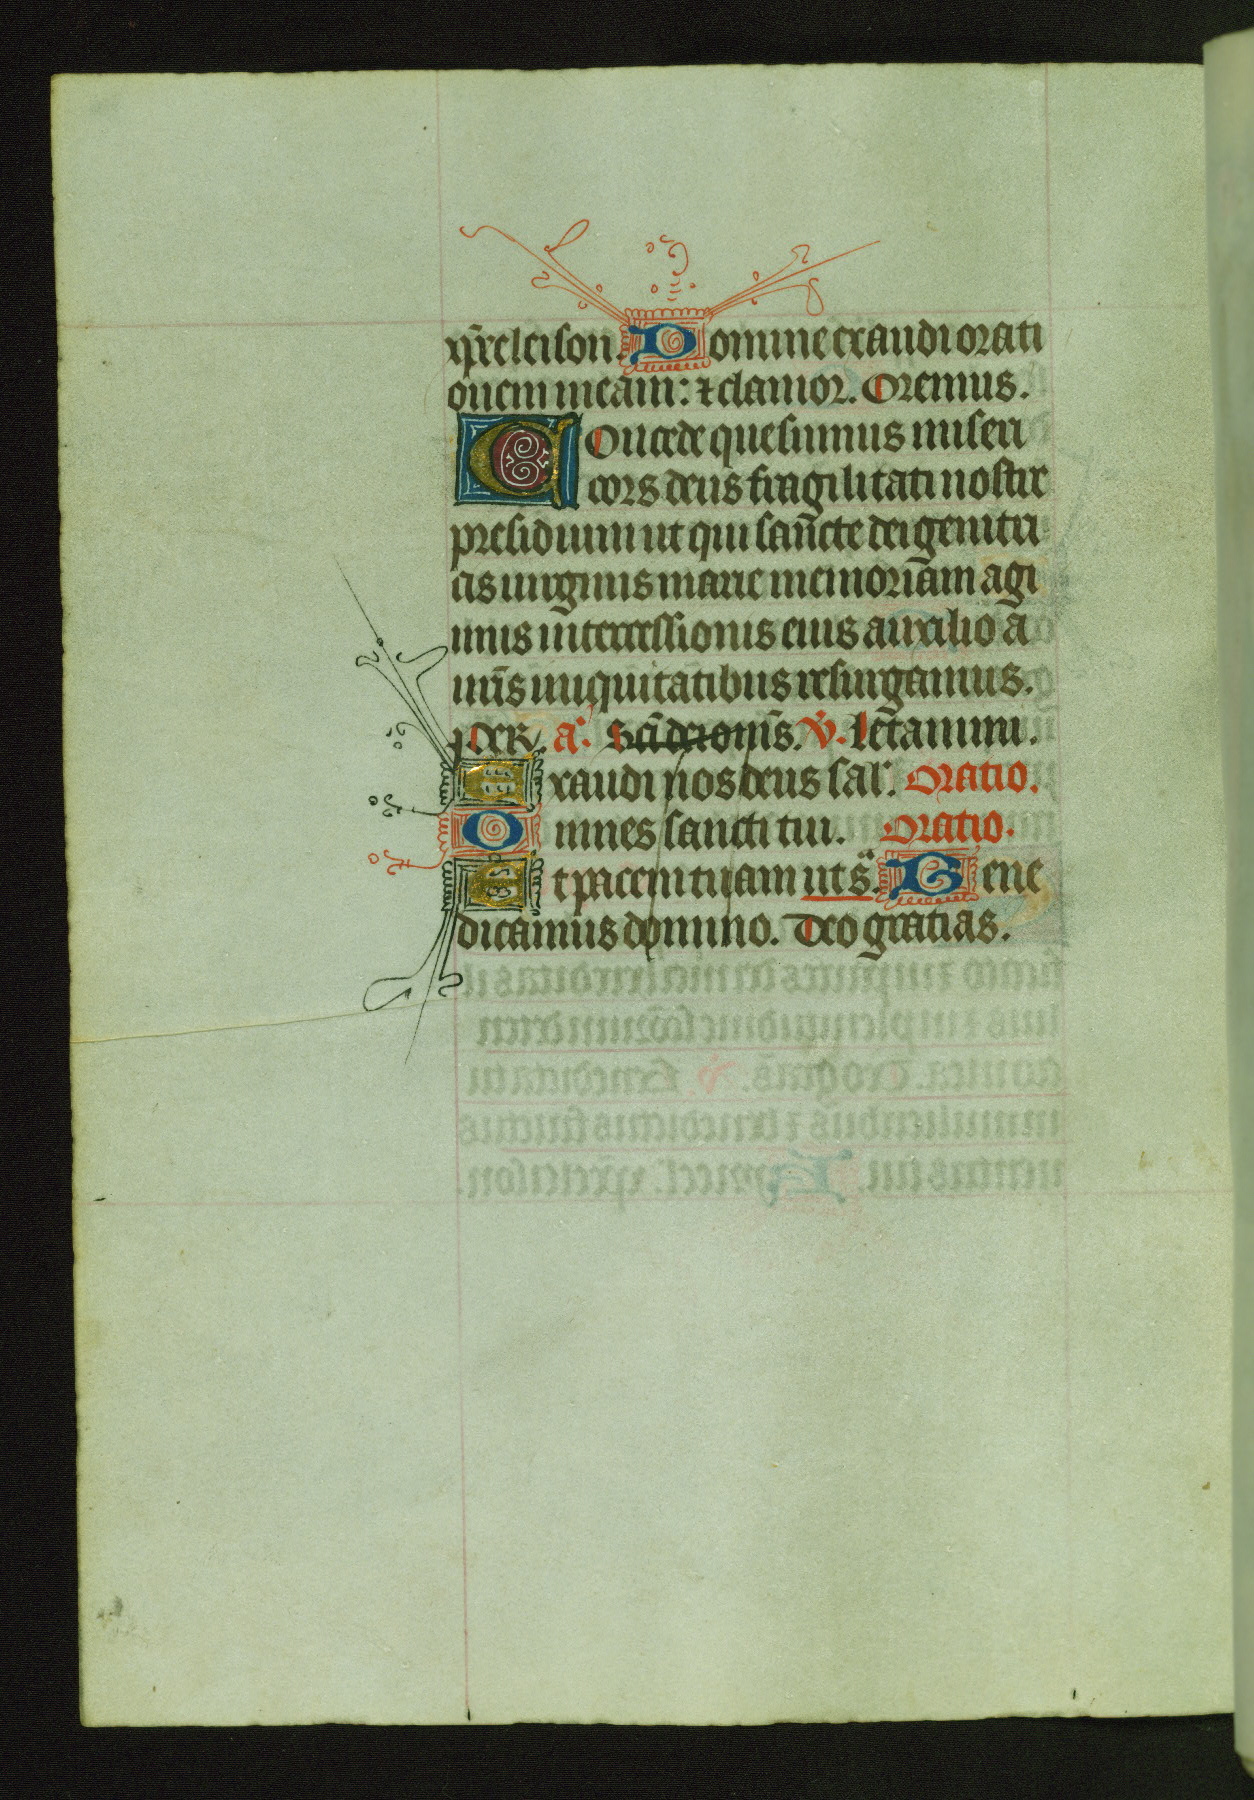 xp̄eleison. Domine exaudi orati
onem meam: ⁊ clamor. Oremus.
Concede quesumus miseri
cors deus fragilitati nostre
presidium ut qui sancte dei genitri
cis uirginis marie memoriam agi
mus intercessionis eius auxilio a
nr̄is iniquitatibus resurgamus.
Per. a. Sc̄i dei om̄s. v̄. Letamini.
Exaudi nos deus sal'. Oratio.
Omnes sancti tui. Oratio.
Et pacem tuam ut s. Bene
dicamus domino. Deo gratias.